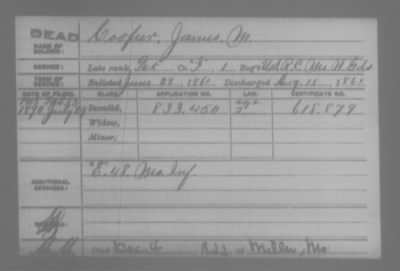 DEAD
NAME OF SOLDIER:
Cooper, James, M.
SERVICE:
Late rank, Pvt Co. "F", 1 Reg't U.S.R.C. Mo. H. Gds
TERM OF SERVICE:
Enlisted June 24, 1861. Discharged Aug. 15, 1861.
DATE OF FILING. CLASS. APPLICATION NO. LAW. CERTIFICATE NO.
1890 July Invalid, 833,450 618,879
Widow,
Minor,
ADDITIONAL SERVICES:
"E" 48 Mo. Inf
Died Dec. 4 at Miller, Mo